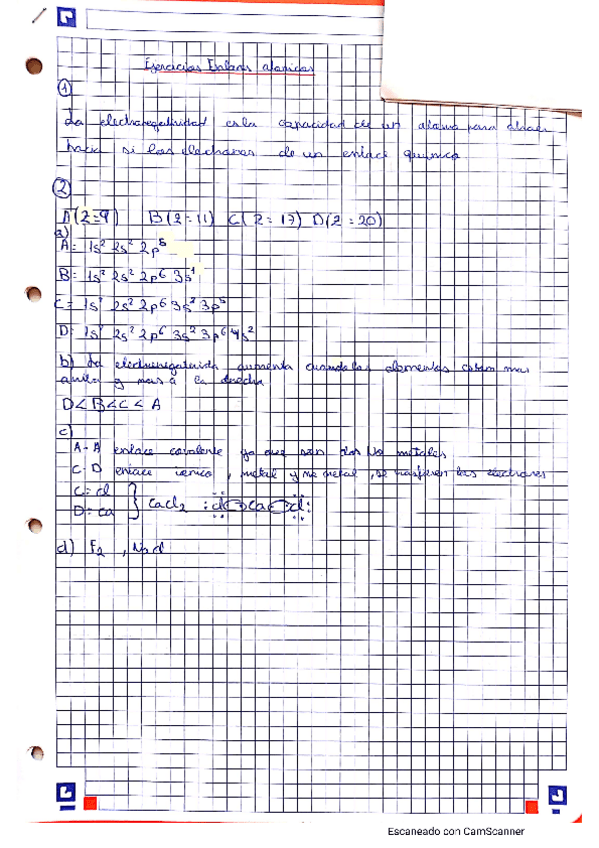 Ejercicios Enlaces atomicos
①
La electronegatividad es la capacidad de un atomo para atraer
hacia si los electrones de un enlace quimico.
②
A(Z=9) B(Z=11) C(Z=17) D(Z=20)
a)
A= 1s² 2s² 2p⁵
B= 1s² 2s² 2p⁶ 3s¹
C= 1s² 2s² 2p⁶ 3s² 3p⁵
D= 1s² 2s² 2p⁶ 3s² 3p⁶ 4s²
b) La electronegativida aumenta cuando los elementos estan mas
arriba y mas a la derecha
D<B<C<A
c)
A-A enlace covalente ya que son dos No metales
C-D enlace ionico, metal y no metal, se transfieren los electrones
C= cl
D= ca } CaCl₂ :cl ca cl:
d) F₂, Nacl
Escaneado con CamScanner